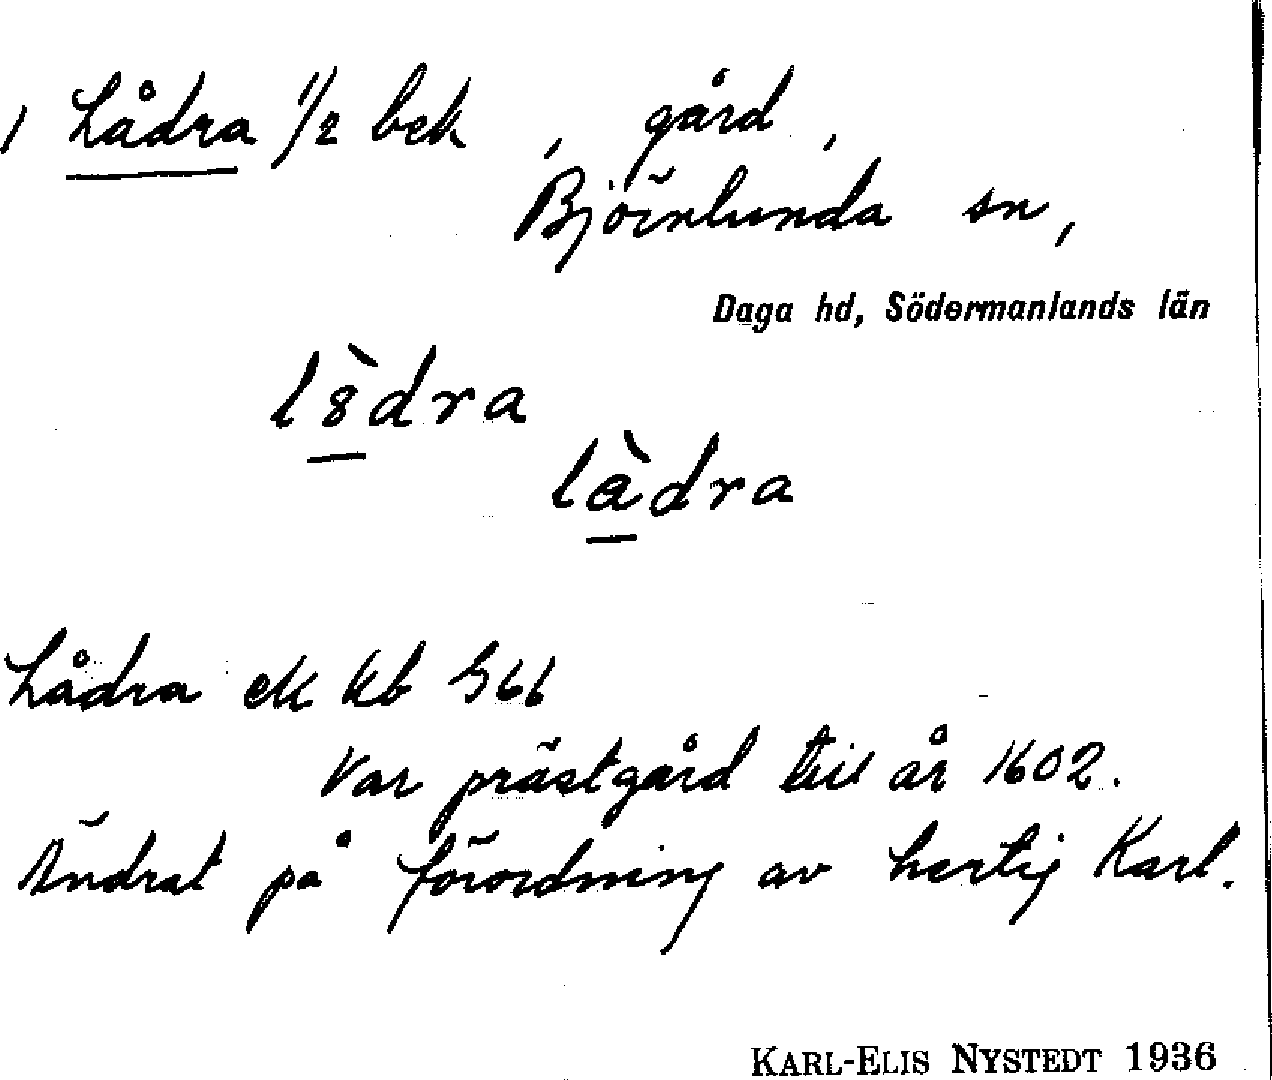 / Lådra 1/2 bek , gård ,
Björnlunda sn,
Daga hd, Södermanlands län
l8̀dra
làdra
Lådra ek kb S66
Var prästgård till år 1602.
Ändrat på förordning av hertig Karl.
KARL-ELIS NYSTEDT 1936